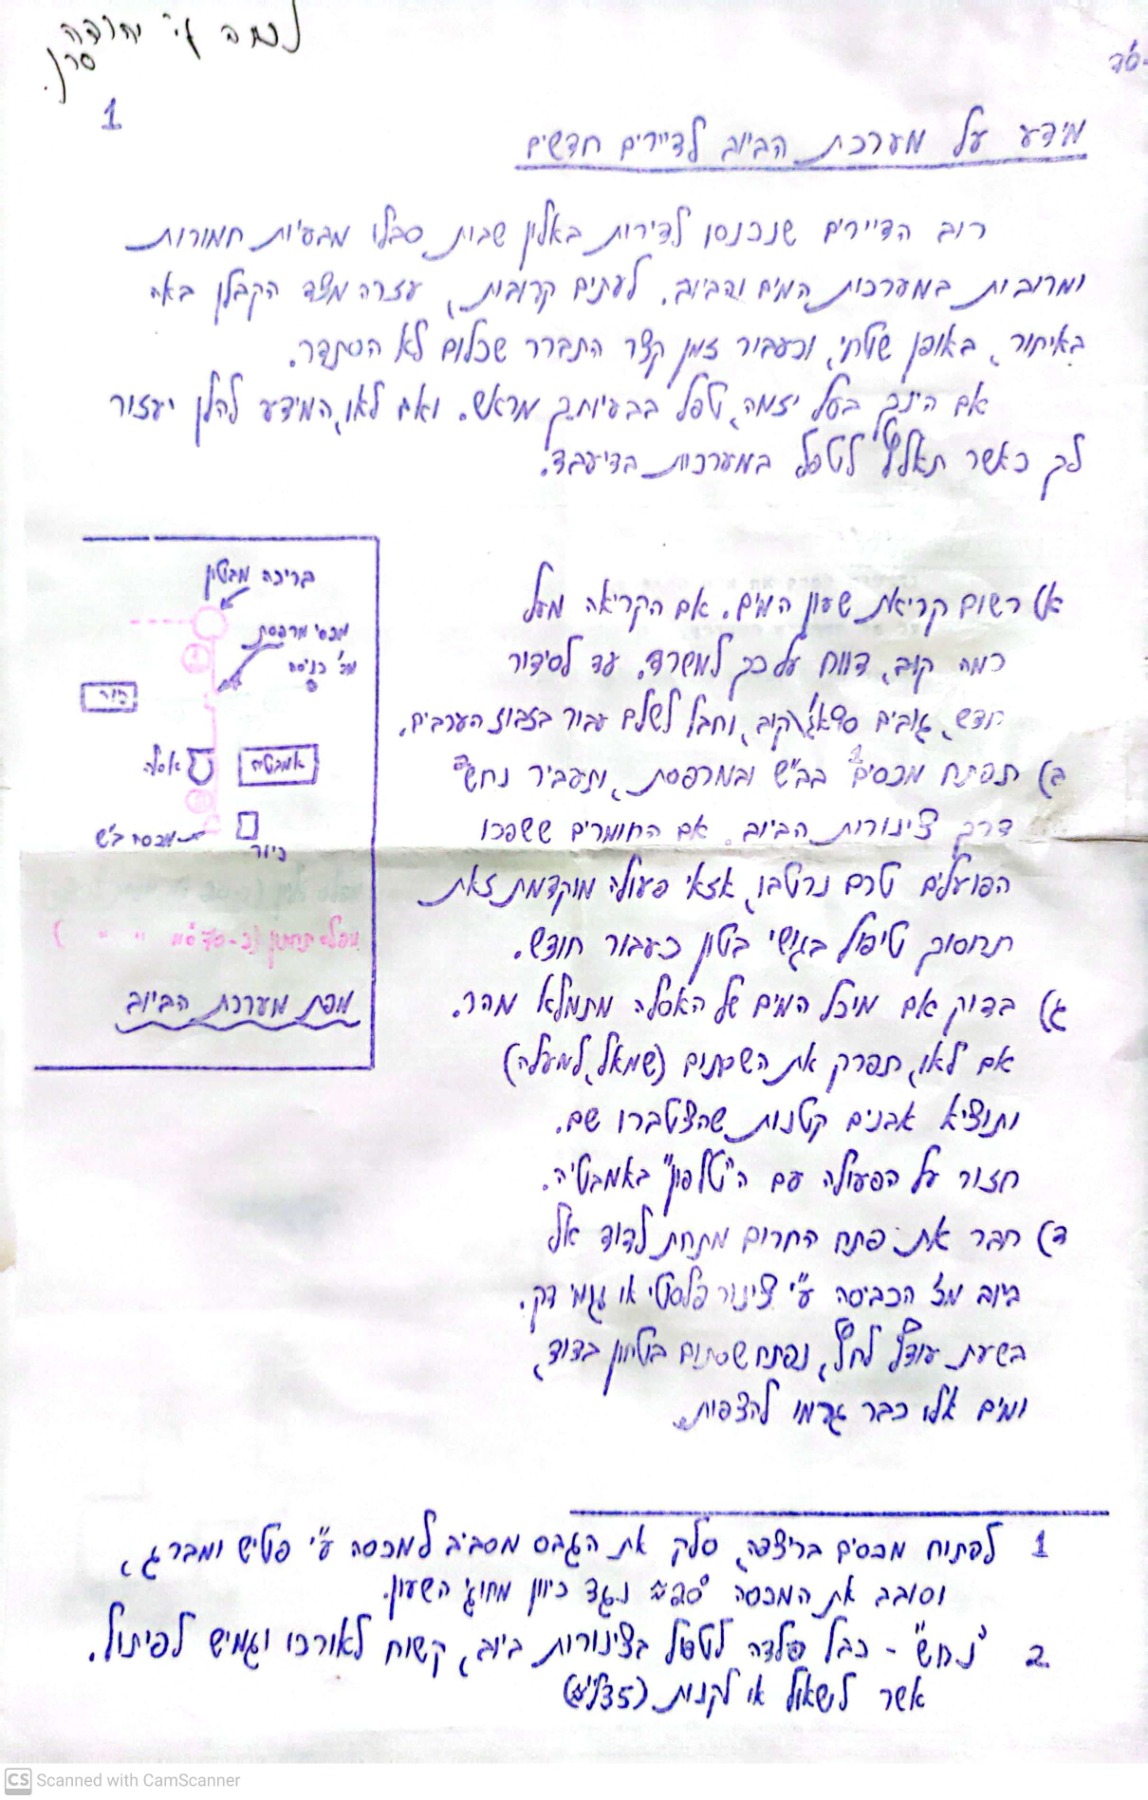 נכתב ע"י יהודה
סרן.
1
מידע על מערכת הביוב לדיירים חדשים
רוב הדיירים שנכנסו לדירות באלון שבות סבלו מבעיות חמורות
ומרובות במערכות המים והביוב. לעתים קרובות, עזרה מצד הקבלן באה
באיחור, באופן שטחי, וכעבור זמן קצר התברר שכלום לא הסתדר.
אם הינך בעל יזמה, טפל בבעיותך מראש. ואם לאו, המידע להלן יעזור
לך כאשר תאלץ לטפל במערכות בדיעבד.
א) רשום קריאת שעון המים. אם הקריאה מעל
כמה קוב, דווח על כך למשרד. עד לסידור
חדש, גובים קוב, וחבל לשלם עבור בזבוז הערבים.
ב) תפתח מכסים1 בב"ש ובמרפסת, ותעביר נחש2
דרך צינורות הביוב. אם החומרים ששפכו
הפועלים טרם נרטבו, אזאי פעולה מוקדמת זאת
תחסוך טיפול בגושי בטון כעבור חודש.
ג) בדוק אם מיכל המים של האסלה מתמלא מהר.
אם לאו, תפרק את השסתום (שמאל, למעלה)
ותוציא אבנים קטנות שהצטברו שם.
חזור על הפעולה עם ה"טלפון" באמבטיה.
ד) חבר את פתח החרום מתחת לדוד אל
ביוב מכ' הכביסה ע"י צינור פלסטי או גומי דק.
בשעת עודף לחץ, נפתח שסתום בטחון בדוד,
ומים אלו כבר גרמו להצפות.
בריכה מבטון
מכסי מרפסת
מכ' כניסה
כיור
אסלה
אמבטיה
מכסה ב"ש
כיור
מפלס תחתון
מפת מערכת הביוב
1 לפתוח מכסים בריצפה, סלק את הגבס מסביב למכסה ע"י פטיש ומברג,
וסובב את המכסה נגד כיוון מחוגי השעון.
2 "נחש" - כבל פלדה לטפל בצינורות ביוב, קשוח לאורכו וגמיש לפיתול.
אשר לשאול או לקנות (35 ל"י)
Scanned with CamScanner